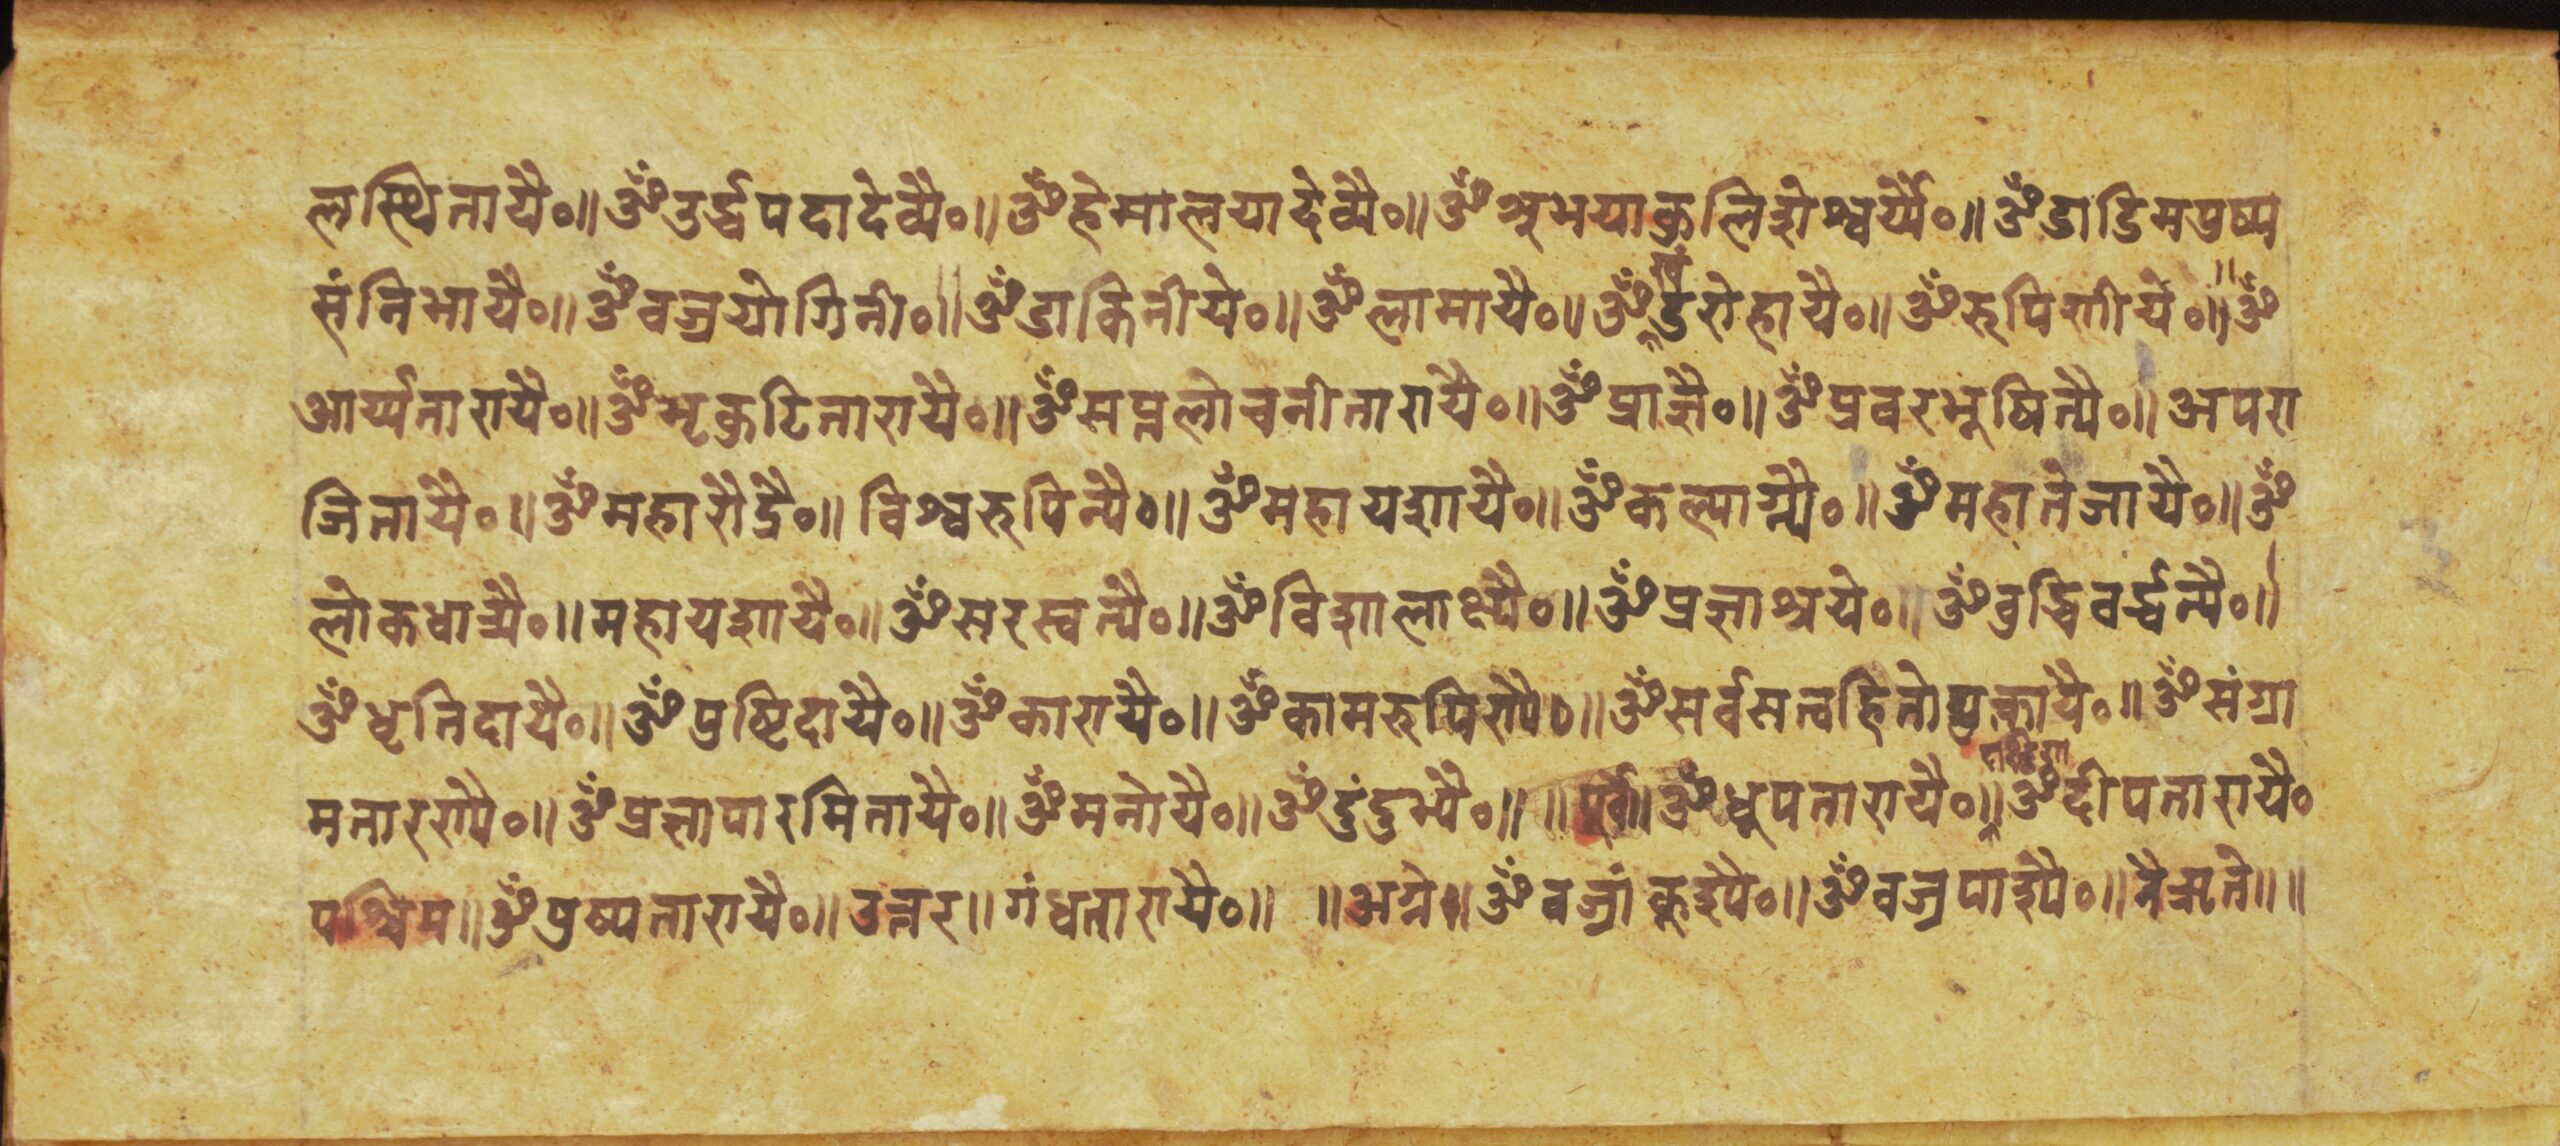 लस्थितायै०॥ॐउर्द्धपदादेव्यै०॥ॐहेमालयादेव्यै०॥ॐश्रुभयाकुलिशेश्वर्य्यै०॥ॐडाडिमपुष्प
संनिभायै०॥ॐवज्रयोगिनी०॥ॐडाकिनीये०॥ॐलामायै०॥ॐखंडरोहायै०॥ॐरूपिणीये०॥ॐ
आर्य्यतारायै०॥ॐभृकुटितारायै०॥ॐसप्तलोचनीतारायै०॥ॐप्राज्ञै०॥ॐप्रवरभूषिन्यै०॥अपरा
जितायै०॥ॐमहारौद्रै०॥विश्वरुपिन्यै०॥ॐमहायशायै०॥ॐकल्पाग्न्यै०॥ॐमहातेजायै०॥ॐ
लोकधात्र्यै०॥महायशायै०॥ॐसरस्वत्यै०॥ॐविशालाक्ष्यै०॥ॐप्रज्ञाश्रये०॥ॐबुद्धिवर्द्धन्यै०॥
ॐधृतिदायै०॥ॐपुष्टिदायै०॥ॐकारायै०॥ॐकामरुपिण्यै०॥ॐसर्वसत्वहितोद्युक्तायै०॥ॐसंग्रा
मतारण्यै०॥ॐप्रज्ञापारमितायै०॥ॐमनोयै०॥ॐदुंदुभ्यै०॥॥पूर्व॥ॐधूपतारायै०॥ॐदीपतारायै०
पश्चिम॥ॐपुष्पतारायै०॥उत्तर॥गंधतारायै०॥॥अग्ने॥ॐवज्रांकुश्यै०॥ॐवज्रपाश्यै०॥नैऋते॥॥